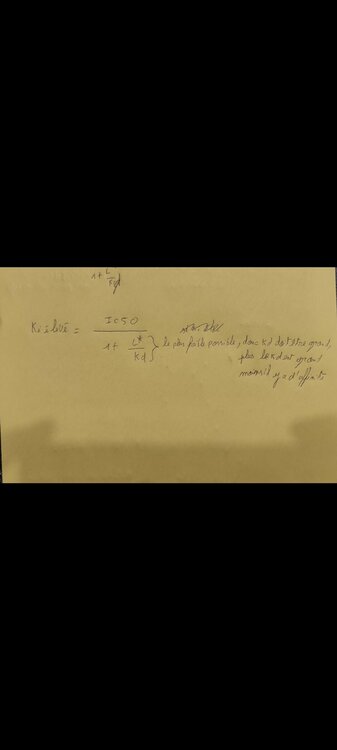 1+ L
Kd
Ki élevé = IC50
1+ L*
Kd
le plus faible possible, donc Kd doit être grand,
plus le Kd est grand
moins il y a d'affinité